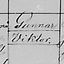 Gunnar
Viktor,